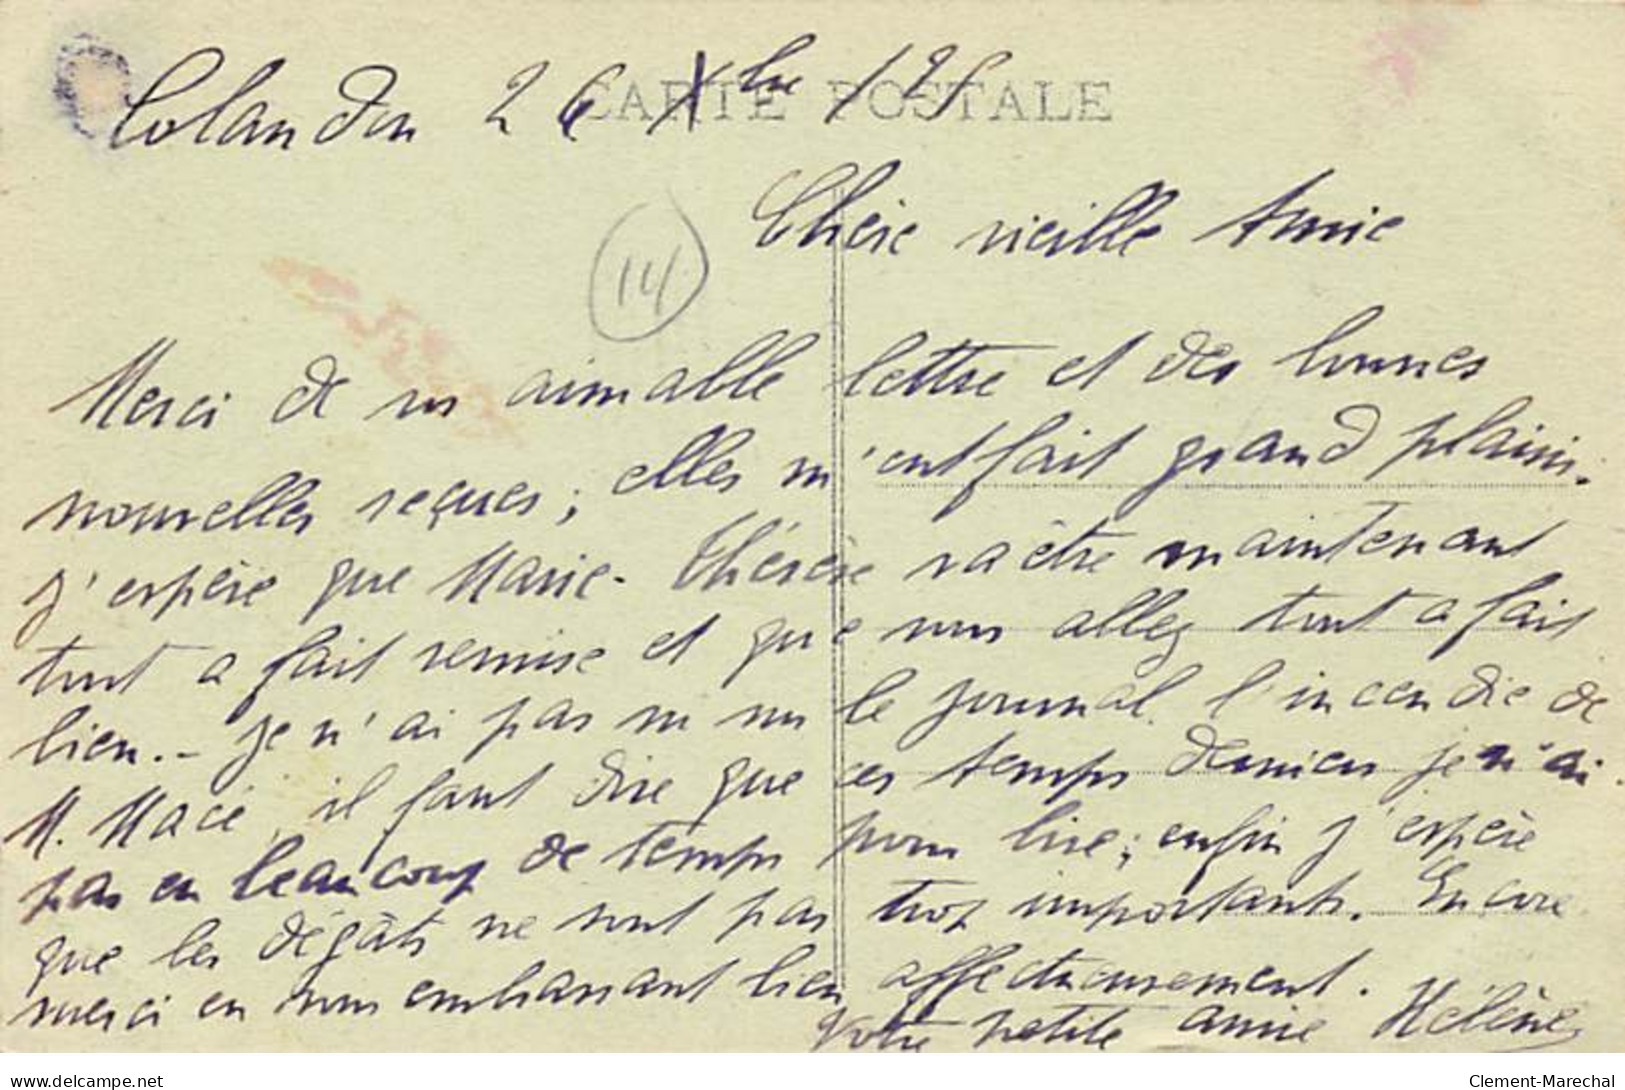 Colandon 26 Xbre 125
CARTE POSTALE
Chère vieille Amie
14
Merci de vos aimable lettre et des bonnes
nouvelles reçues ; elles m'ont fait grand plaisir.
J'espère que Marie-Thérèse va être maintenant
tout a fait remise et que vous allez tout a fait
bien. - Je n'ai pas vu sur le journal l'incendie de
M. Macé, il faut dire que ces temps derniers je n'ai
pas eu beaucoup de temps pour lire ; enfin j'espère
que les dégâts ne sont pas trop importants. Encore
merci en vous embrassant bien affectueusement.
Votre petite amie Hélène
delcampe.net
Clement-Marechal